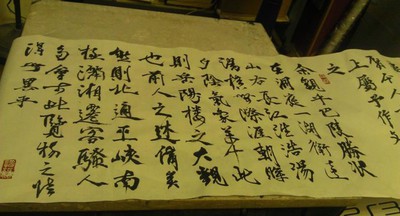 上屬予作文
之
余觀夫巴陵勝狀
在洞庭一湖銜遠
山吞長江浩浩湯
湯橫無際涯朝暉
夕陰氣象萬千此
則岳陽樓之大觀
也前人之述備矣
然則北通巫峽南
極瀟湘遷客騷人
多會于此覽物之情
得無異乎